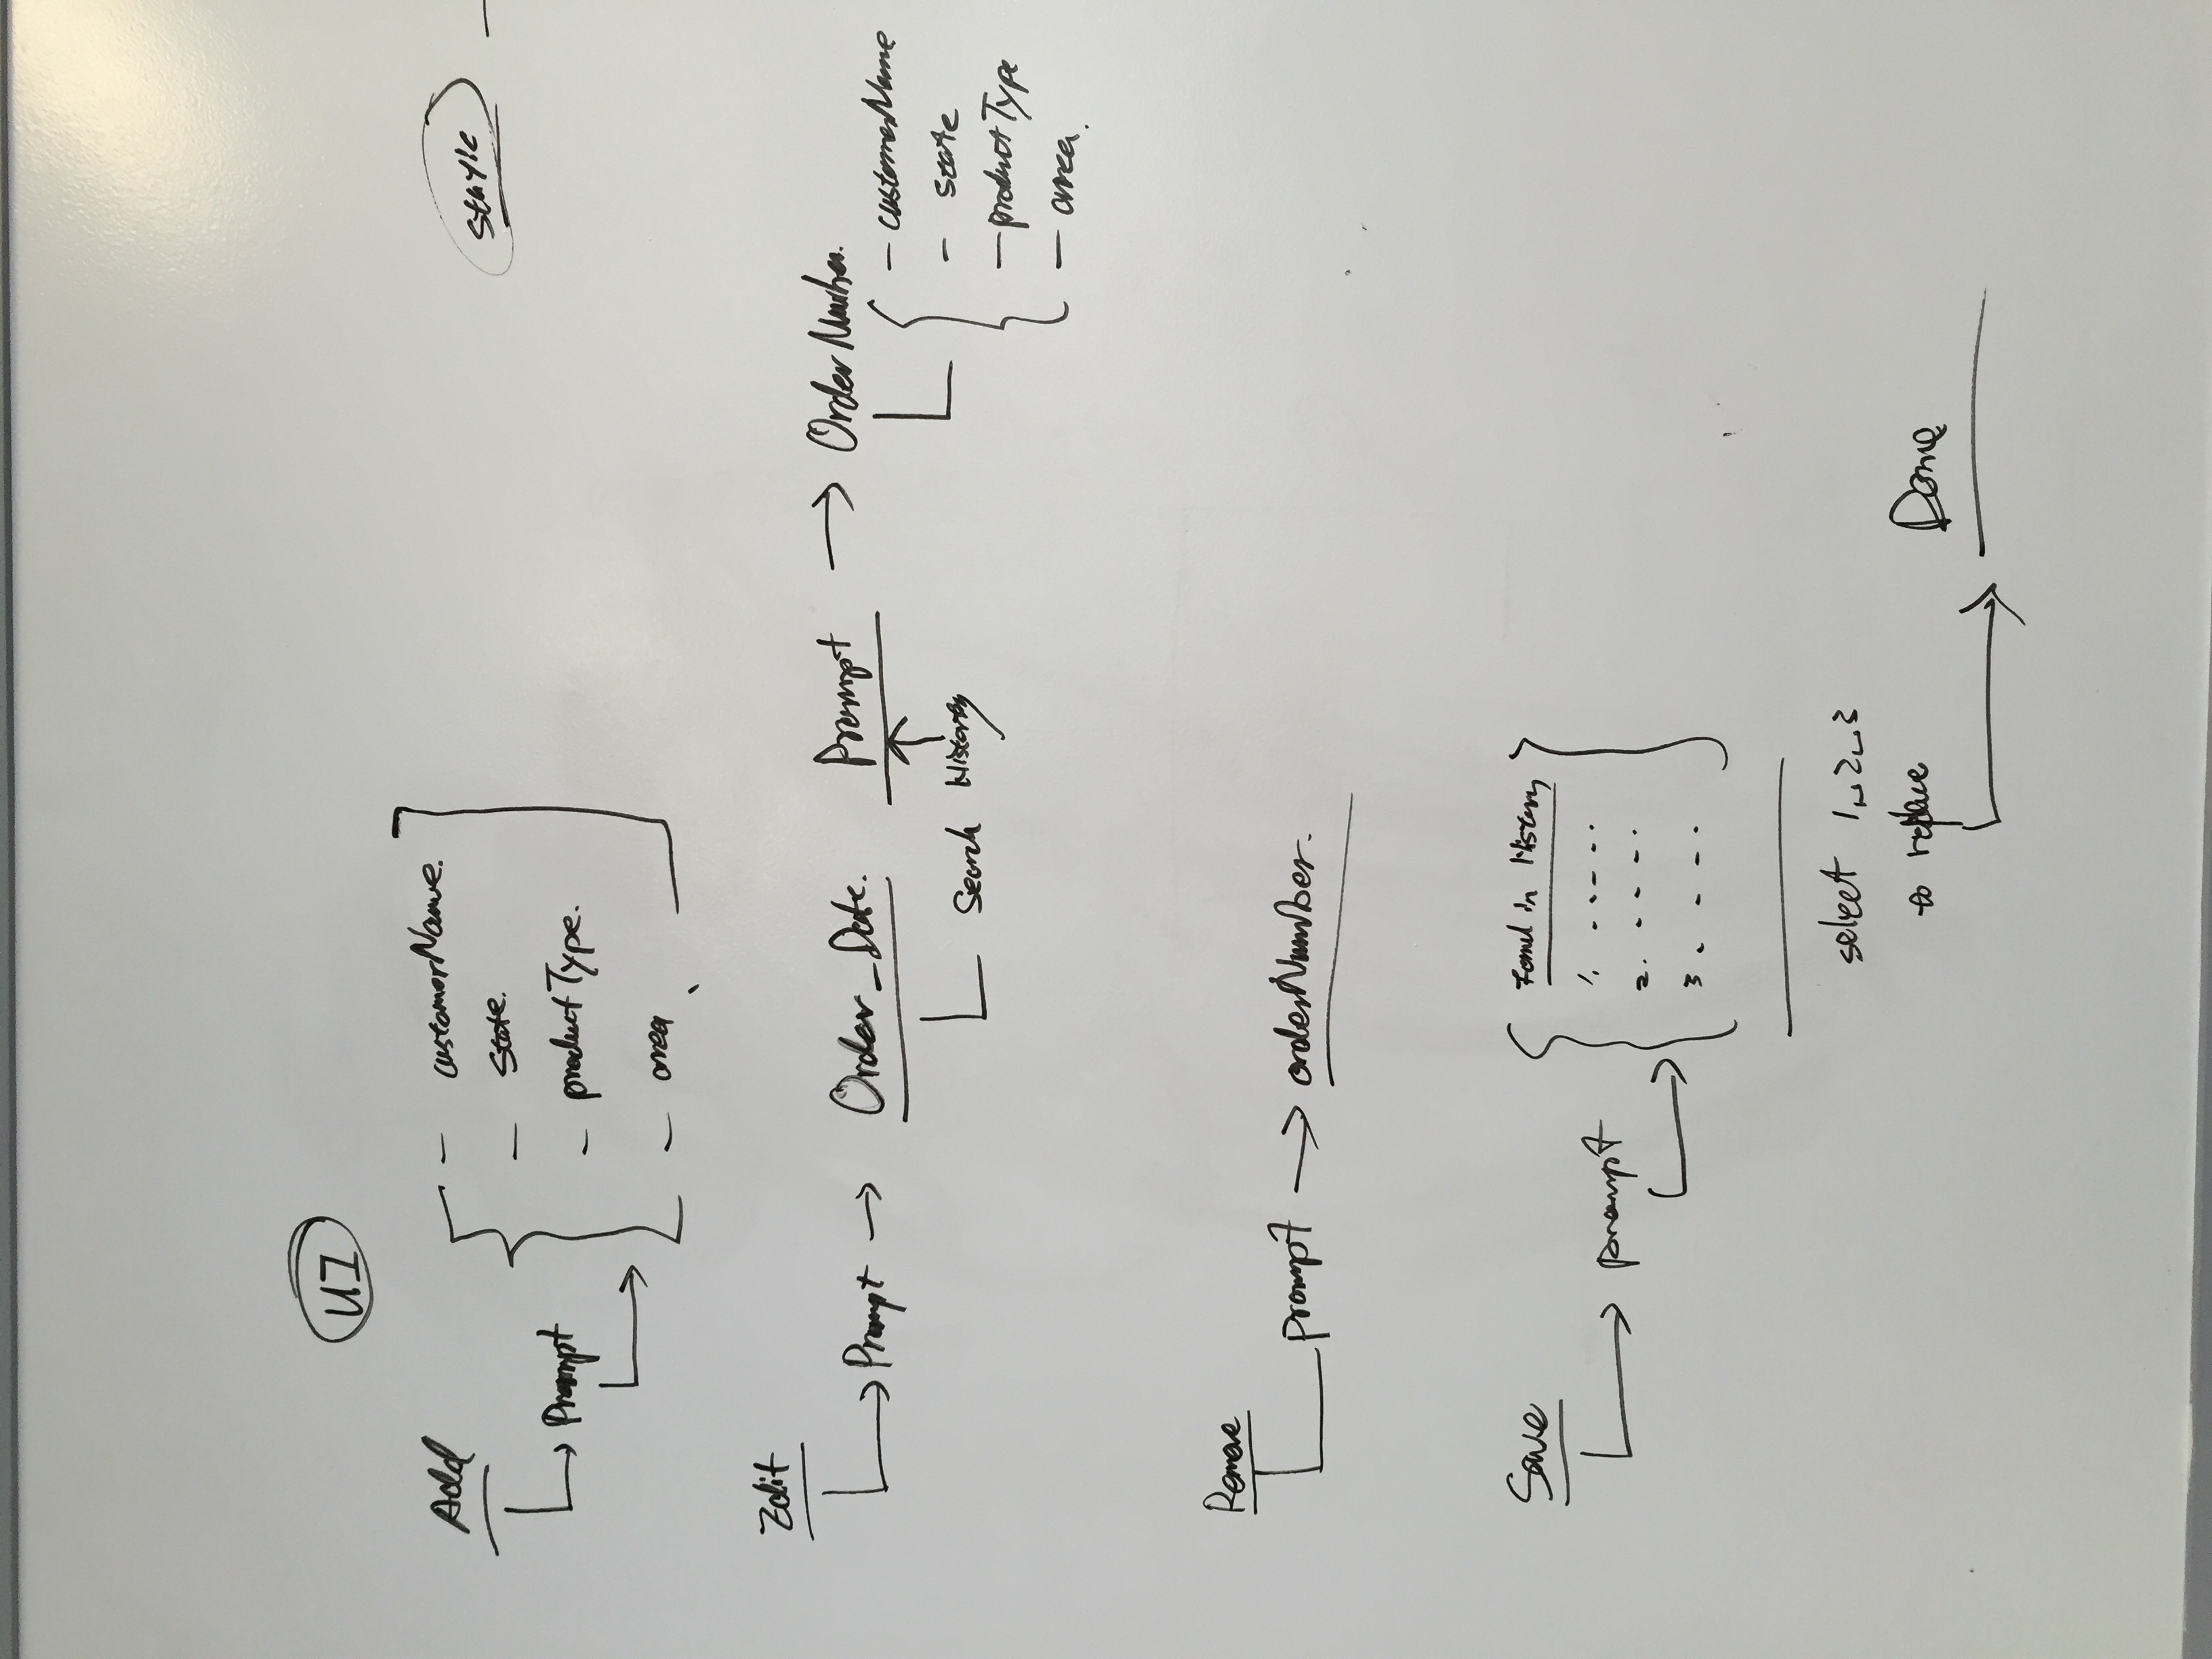 UI
Add
Prompt
- customerName.
- State.
- productType.
- area
Edit
Prompt → Order_Date. Prompt → OrderNumber.
Search History
- customerName
- state
- productType
- area.
Remove
prompt → orderNumber.
Save
prompt
Found in History
1. .....
2. ....
3. ....
select 1 2 3
to replace
Done